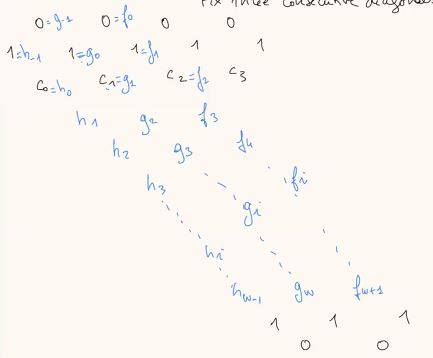 Fix three consecutive diagonals
0=g₋₁ 0=f₀ 0 0
1=h₋₁ 1=g₀ 1=f₁ 1 1
c₀=h₀ c₁=g₁ c₂=f₂ c₃
h₁ g₂ f₃
h₂ g₃ f₄
h₃ fᵢ
gᵢ
hᵢ
h_{w-1} g_w f_{w+1}
1 1 1
0 0